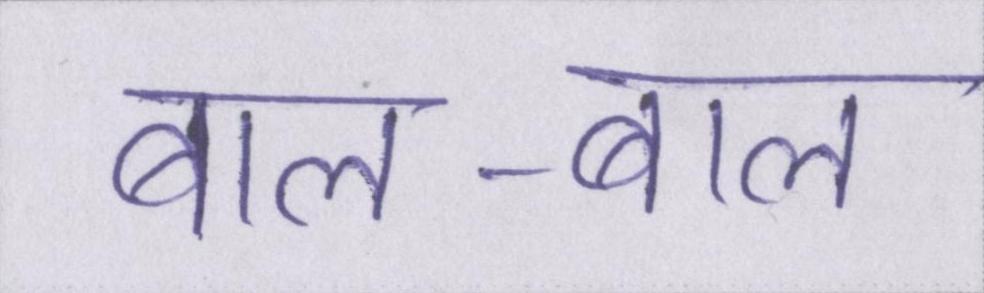 बाल-बाल